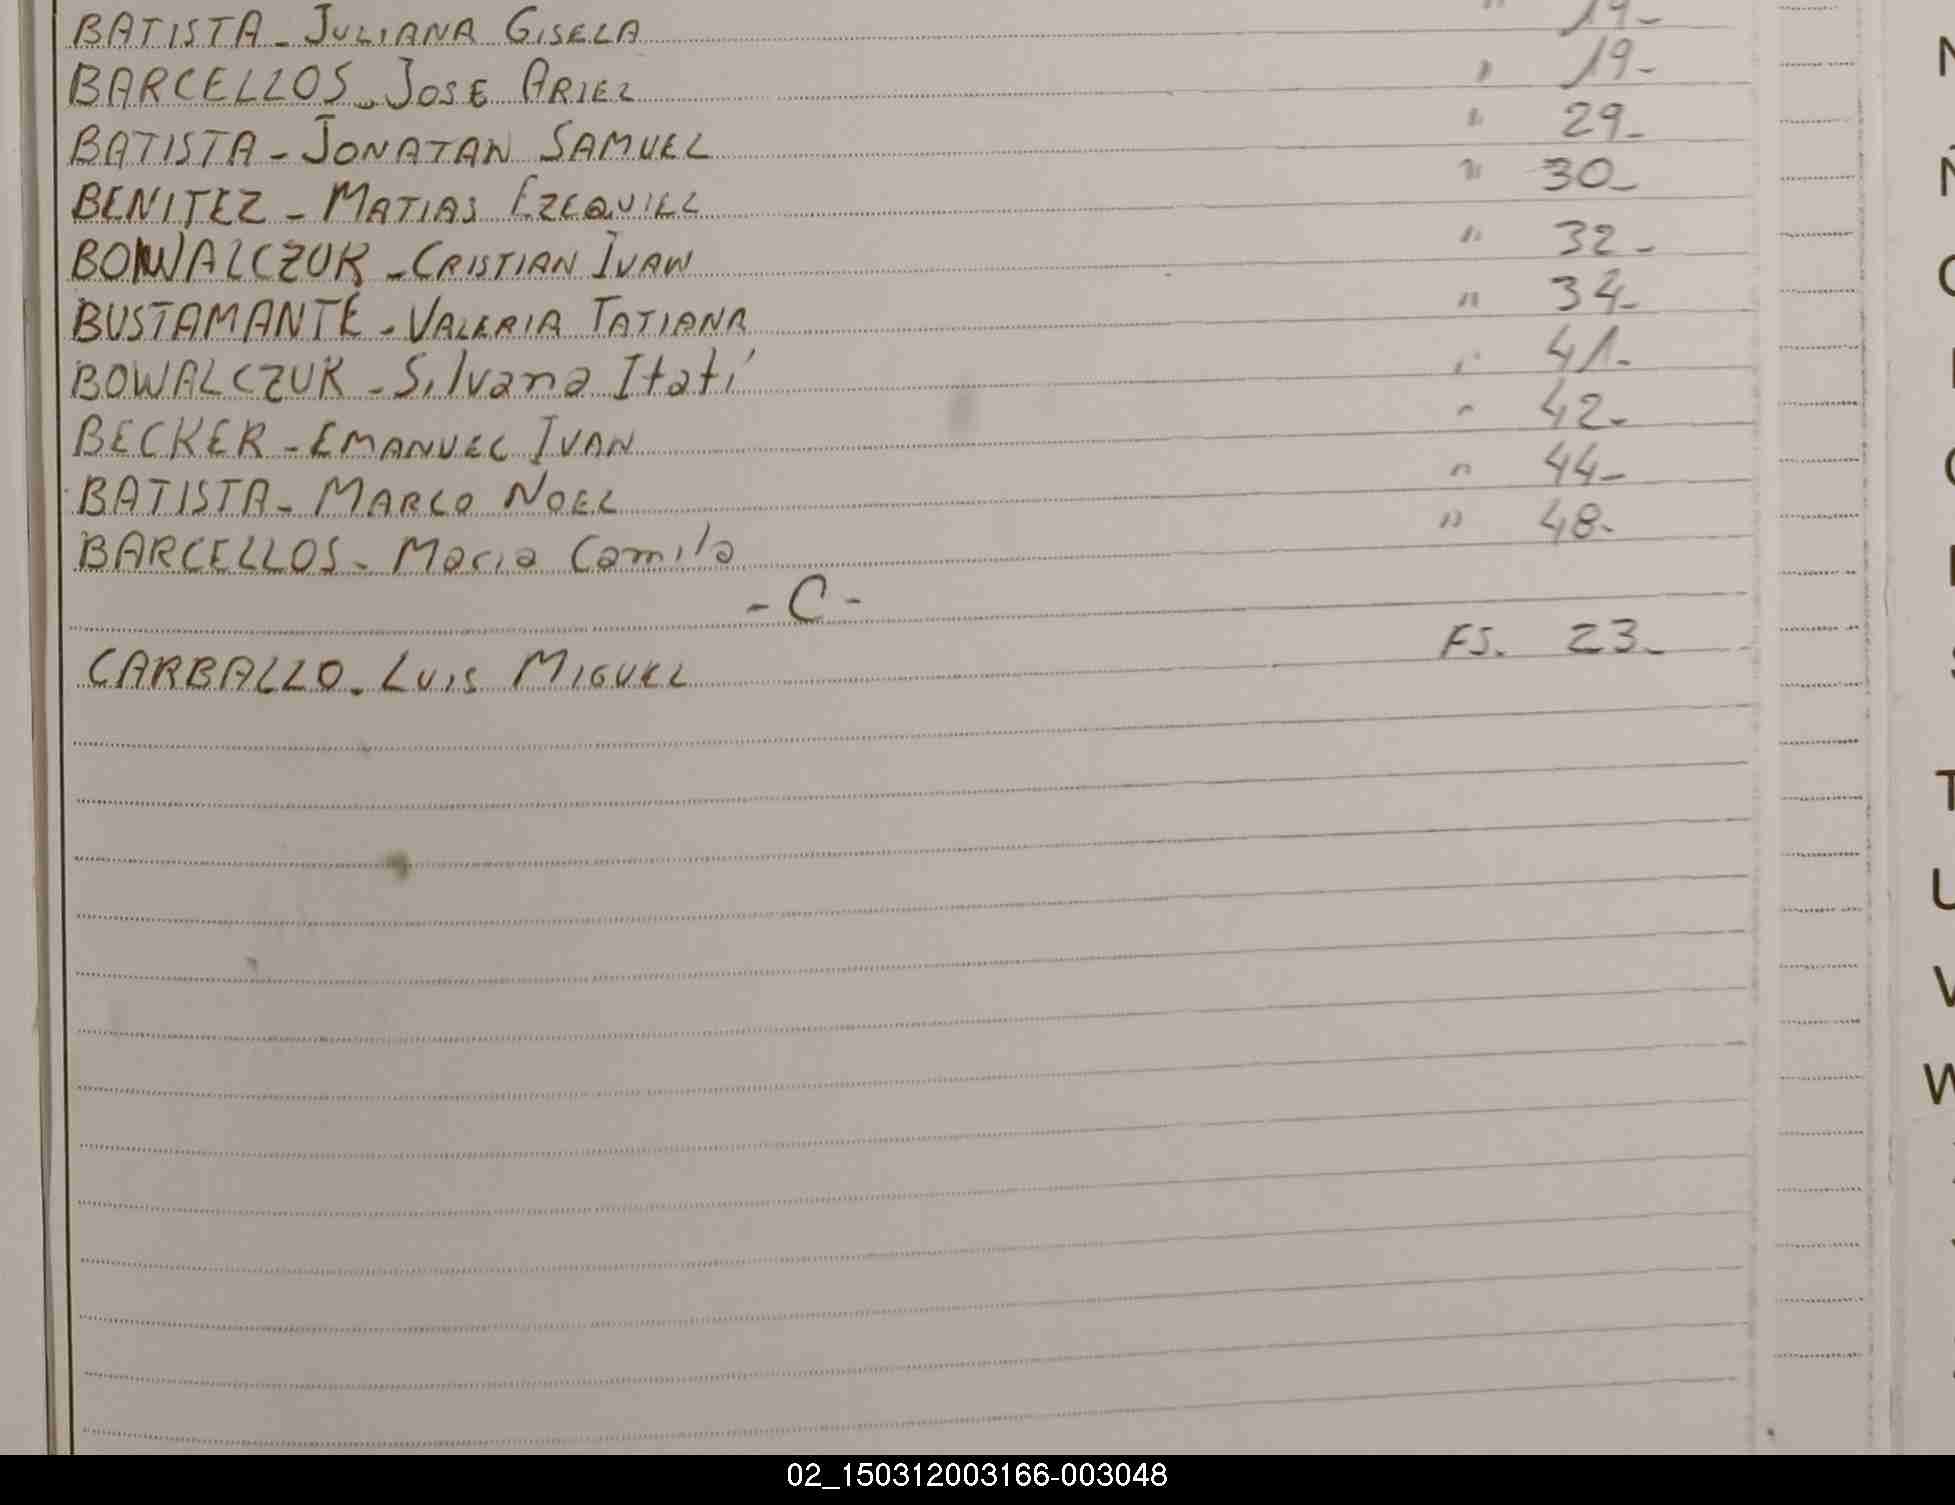 BATISTA - JULIANA GISELA "
BARCELLOS - JOSE ARIEL " 19-
BATISTA - JONATAN SAMUEL " 29-
BENITEZ - MATIAS EZEQUIEL " 30-
BOWALCZUK - CRISTIAN IVAN " 32-
BUSTAMANTE - VALERIA TATIANA " 34-
BOWALCZUK - Silvana Itatí " 41-
BECKER - EMANUEL IVAN " 42-
BATISTA - MARCO NOEL " 44-
BARCELLOS - Maria Camila " 48-
- C -
CARBALLO - LUIS MIGUEL FS. 23-
T
U
V
W
02_150312003166-003048